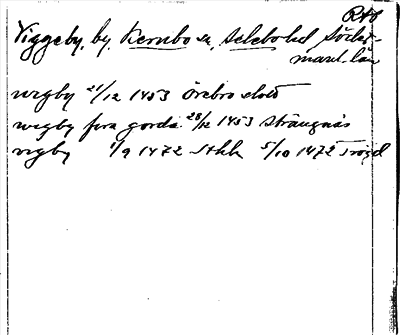 RAÖ
Viggeby, by, Kernbo sn, Selebo hd Söder-
manl. län
wigby 21/12 1453 Örebro slott
wigby fyra gorda 28/12 1453 Strängnäs
vigby 1/9 1472 Sthlm 5/10 1472 Trögd